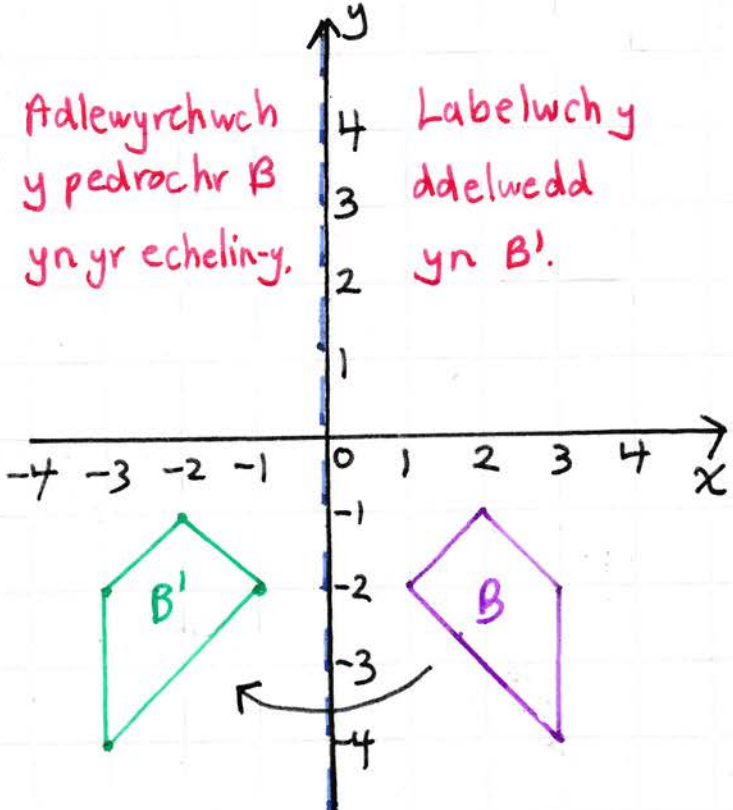 y
Adlewyrchwch
y pedrochr B
yn yr echelin-y.
Labelwch y
ddelwedd
yn B'.
4
3
2
1
-4 -3 -2 -1 0 1 2 3 4 x
-1
-2
-3
-4
B'
B